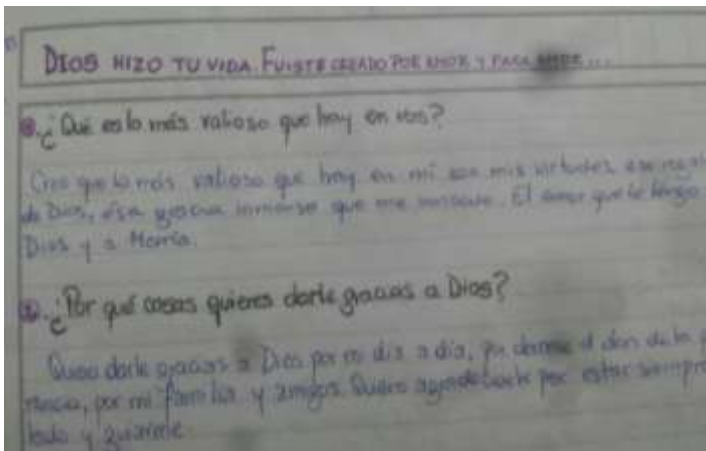 DIOS HIZO TU VIDA. FUISTE CREADO POR AMOR Y PARA AMAR...
¿Qué es lo más valioso que hay en vos?
Creo que lo más valioso que hay en mí son mis virtudes, ese
de Dios, esa gracia inmensa que me. El amor que le tengo
Dios y a María.
¿Por qué cosas quieres darle gracias a Dios?
Quiero darle gracias a Dios por mi día a día, por darme el don de la
por mi familia y amigos. Quiero agradecerle por estar siempre
lado y guiarme.